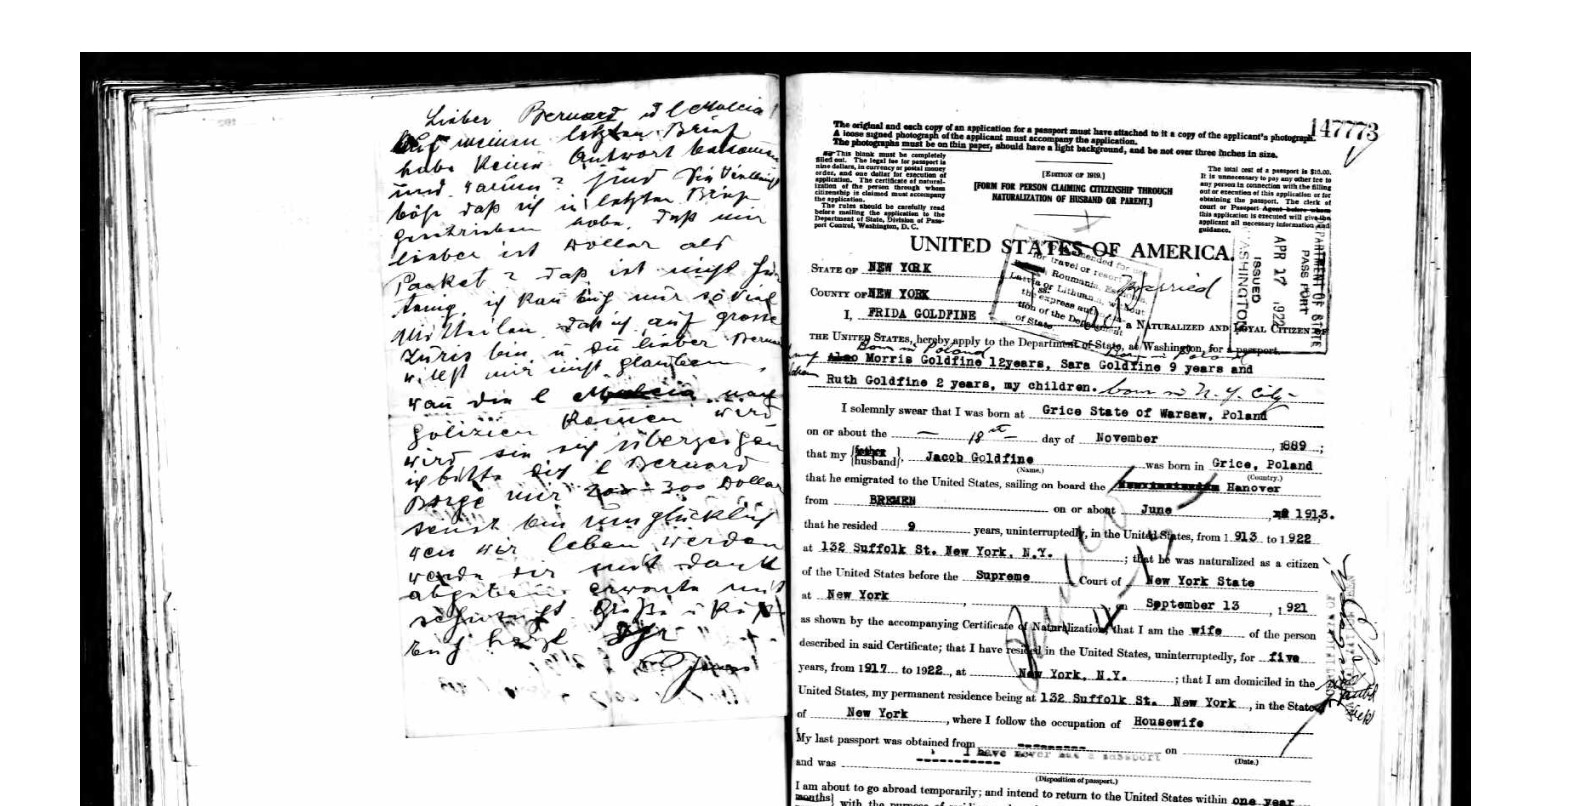 Lieber Bernard u l Malcia
Auf meinen letzten Brief
habe keine Antwort bekommen
und warum? sind Sie vielleicht
böse daß ich in letzten Brief
geschrieben habe, daß mir
lieber ist Dollar als
Packet?  daß ist nicht
ich kan Euch nur so viel
Mitteilen daß ich auf grosse
bin u. Du lieber
willst mir nicht glauben
wan die l Malcia nach
Golizien komen wird
wird sie sich überzeigen
ich bitte dich l Bernard
Borge mir 200-300 Dollar
sonst bin unglücklich
wen wir leben werden
werde dir mit dank
abgeben erwarte mit
Grüße u Küße
euch herzl Ihr
147773
The original and each copy of an application for a passport must have attached to it a copy of the applicant's photograph.
A loose signed photograph of the applicant must accompany the application.
The photographs must be on thin paper, should have a light background, and be not over three inches in size.
This blank must be completely
filled out. The legal fee for passport is
nine dollars, in currency or postal money
order, and one dollar for execution of
application. The certificate of natural-
ization of the person through whom
citizenship is claimed must accompany
the application.
The rules should be carefully read
before mailing the application to the
Department of State, Division of Pass-
port Control, Washington, D. C.
[EDITION OF 1919.]
[FORM FOR PERSON CLAIMING CITIZENSHIP THROUGH
NATURALIZATION OF HUSBAND OR PARENT.]
The total cost of a passport is $10.00.
It is unnecessary to pay any other fee to
any person in connection with the filling
out or execution of this application or for
obtaining the passport. The clerk of
court or Passport Agent before whom
this application is executed will give the
applicant all necessary information and
guidance.
UNITED STATES OF AMERICA.
DEPARTMENT OF STATE
PASSPORT
APR 17 1922
ISSUED
WASHINGTON
STATE OF NEW YORK
COUNTY OF NEW YORK
for travel or
Roumania,
Latvia or Lithuania, without
the express
tion of the Department
of State
Married
I, FRIDA GOLDFINE, a NATURALIZED AND LOYAL CITIZEN OF
THE UNITED STATES, hereby apply to the Department of State, at Washington, for a passport
Born in Poland Born in Poland
my Also Morris Goldfine 12years, Sara Goldfine 9 years and
Ruth Goldfine 2 years, my children. born in N.Y. City-
I solemnly swear that I was born at Grice State of Warsaw, Poland
on or about the — 18st — day of November, 1889;
that my {father husband} Jacob Goldfine was born in Grice, Poland
(Name.) (Country.)
that he emigrated to the United States, sailing on board the Hanover
from BREMEN on or about June, 1913.
that he resided 9 years, uninterruptedly, in the United States, from 1913 to 1922
at 132 Suffolk St. New York, N.Y.; that he was naturalized as a citizen
of the United States before the Supreme Court of New York State
at New York, on September 13, 1921
as shown by the accompanying Certificate of Naturalization; that I am the wife of the person
described in said Certificate; that I have resided in the United States, uninterruptedly, for five
years, from 1917 to 1922, at New York, N.Y.; that I am domiciled in the
United States, my permanent residence being at 132 Suffolk St. New York, in the State
of New York, where I follow the occupation of Housewife
My last passport was obtained from ---------- on
I have never had a passport
(Date.)
and was -----------
(Disposition of passport.)
I am about to go abroad temporarily; and intend to return to the United States within one year
months} with the purpose of